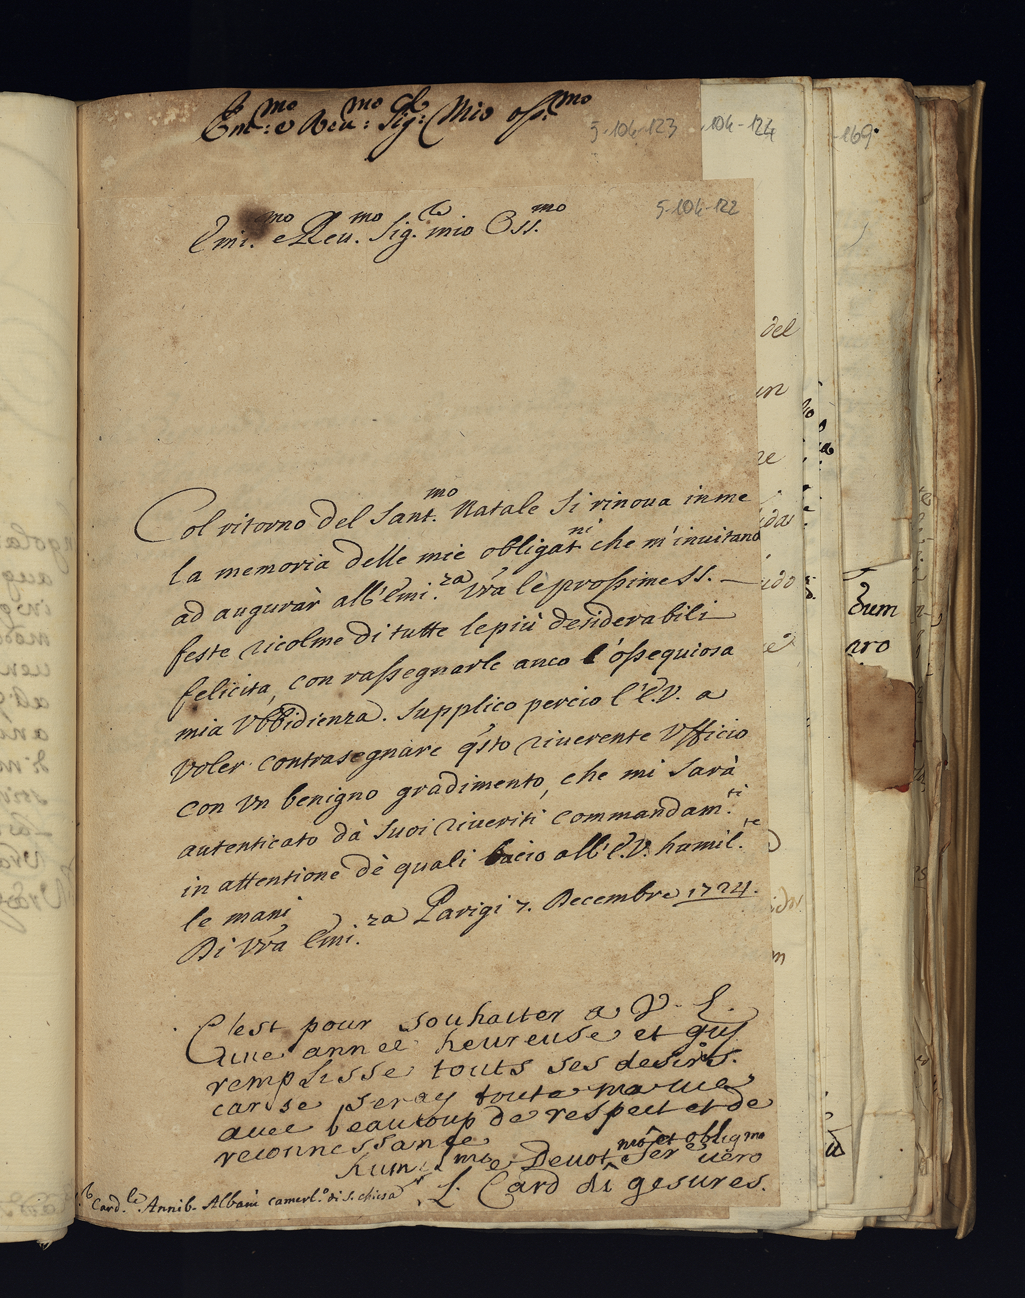 Em.mo e Reu.mo Sig.r Mio oss.mo
5-104-123
104-124
169
5-104-122
Emi.mo e Reu.mo Sig.re mio Oss.mo
Col ritorno del Sant.mo Natale Si rinoua in me
la memoria delle mie obligat.ni che m'inuitano
ad augurar all'Emi.za Vra le prossime SS.
feste ricolme di tutte le più desiderabili
felicita, con rassegnarle anco l'ossequiosa
mia Vbbidienza. Supplico percio l'E.V. a
voler contrasegnare q'sto riuerente Vfficio
con vn benigno gradimento, che mi Sarà
autenticato dà Suoi riueriti commandam.ti
in attentione dè quali bacio all'E.V. humil.te
le mani
Di Vra Emi.za Parigi 7. Decembre 1724.
C'est pour souhaiter a V. E.
une année heureuse et quy
remplisse touts ses desirs.
car je seray toute ma vie
auec beaucoup de respect et de
reconnessance
hum.mo e Deuot.mo et oblig.mo Ser.e uero
L. Card di gesures.
Card.le Annib. Albani camerl.o di S. chiesa
del
un
ne
Eum
nro